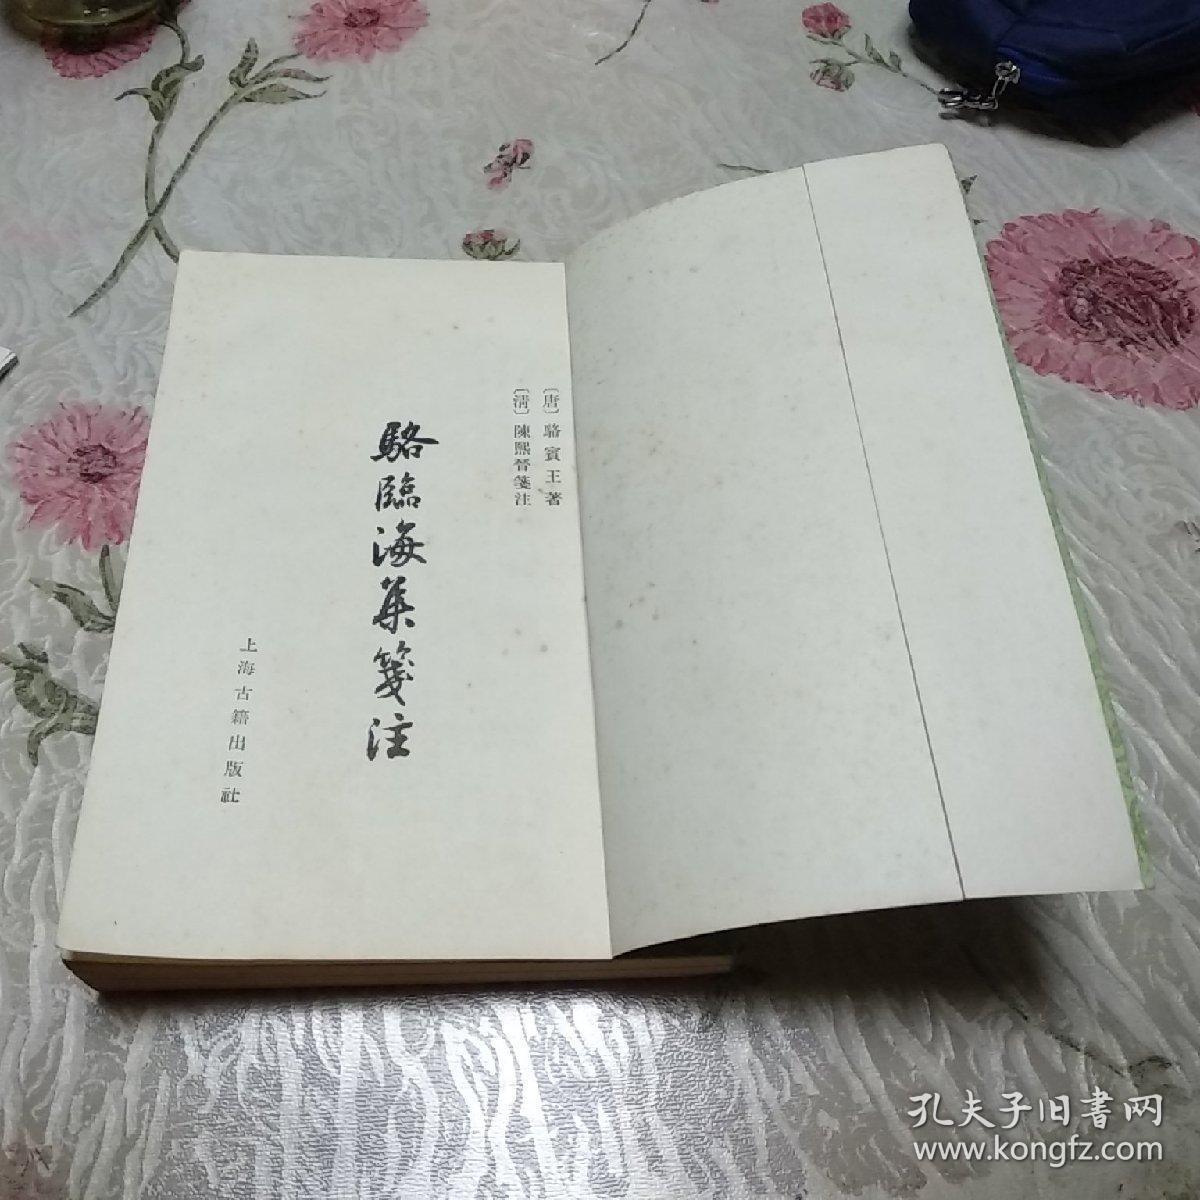 〔唐〕駱賓王著
〔清〕陳熙晉箋注
駱臨海集箋注
上海古籍出版社
孔夫子旧書网
www.kongfz.com